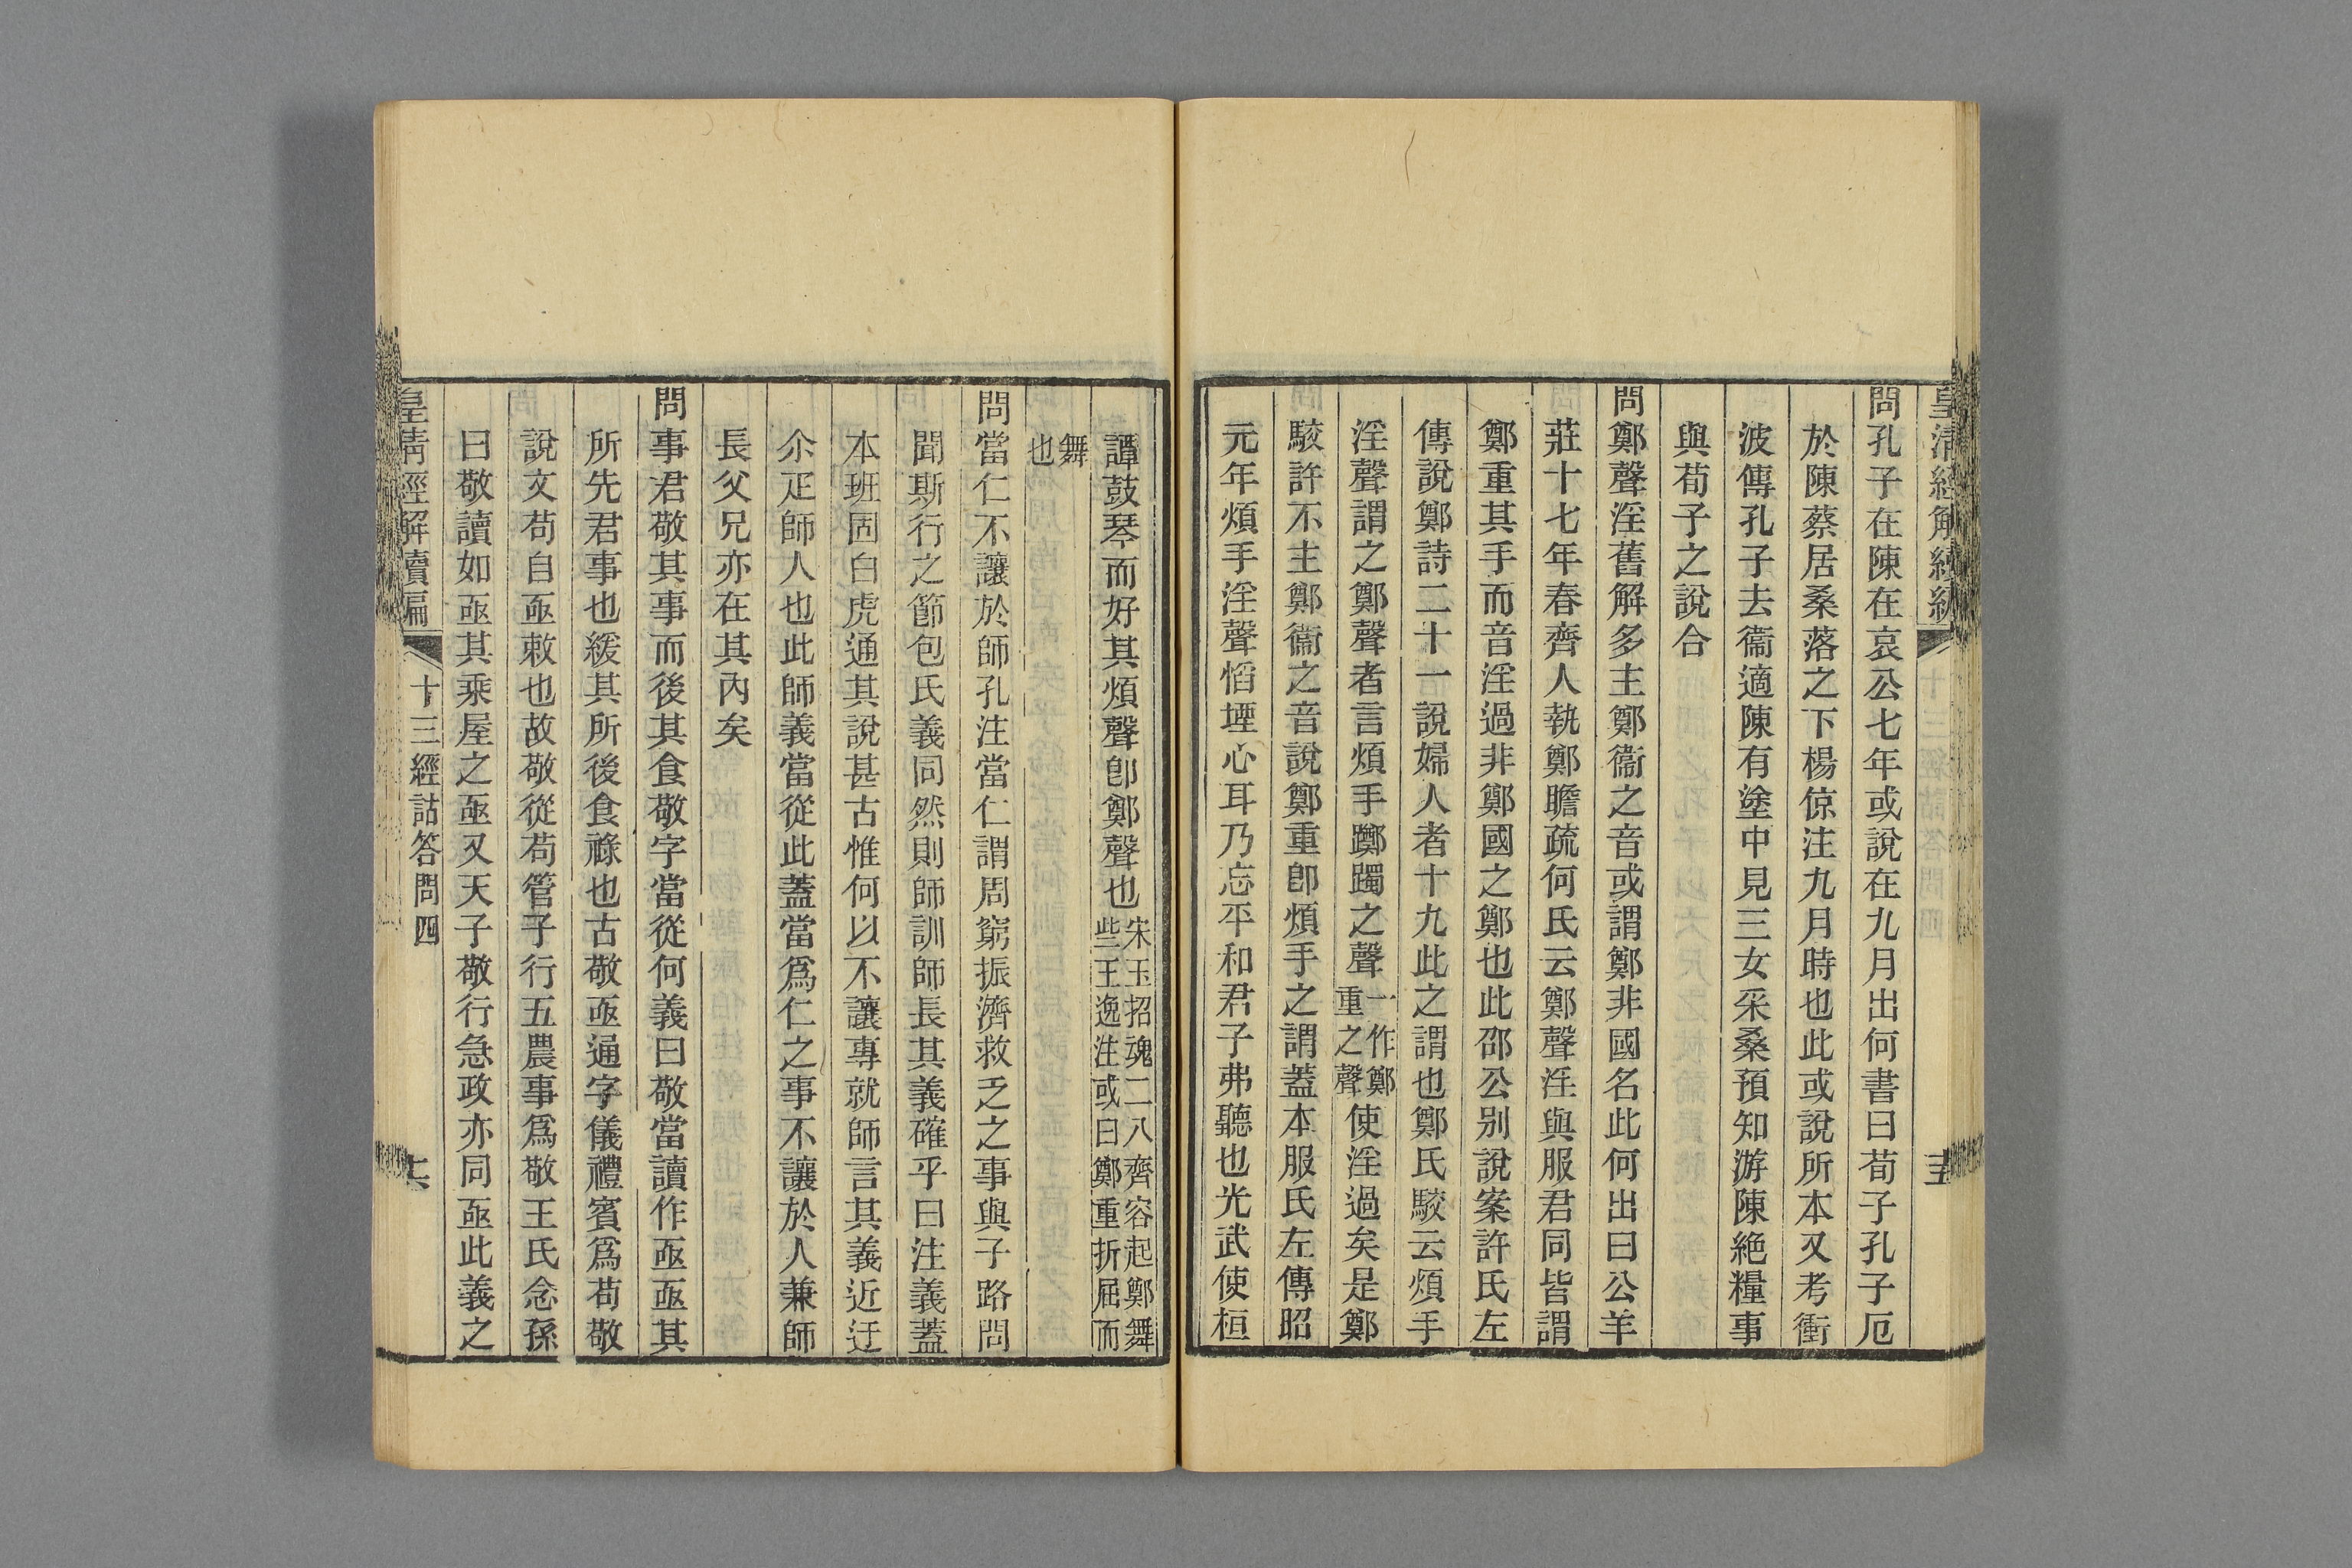 皇清經解續編
問孔子在陳在哀公七年或說在九月出何書曰荀子孔子厄
於陳蔡居桑落之下楊倞注九月時也此或說所本又考衝
波傳孔子去衞適陳有塗中見三女采桑預知游陳絶糧事
與荀子之說合
問鄭聲淫舊解多主鄭衞之音或謂鄭非國名此何出曰公羊
莊十七年春齊人執鄭瞻疏何氏云鄭聲淫與服君同皆謂
鄭重其手而音淫過非鄭國之鄭也此邵公别說案許氏左
傳說鄭詩二十一說婦人者十九此之謂也鄭氏駮云煩手
淫聲謂之鄭聲者言煩手躑躅之聲一作鄭重之聲使淫過矣是鄭
駮許不主鄭衞之音說鄭重卽煩手之謂蓋本服氏左傳昭
元年煩手淫聲慆堙心耳乃忘平和君子弗聽也光武使桓
十五
譚鼓琴而好其煩聲卽鄭聲也宋玉招魂二八齊容起鄭舞些王逸注或曰鄭重折屈而
舞也
問當仁不讓於師孔注當仁謂周窮振濟救乏之事與子路問
聞斯行之節包氏義同然則師訓師長其義確乎曰注義蓋
本班固白虎通其說甚古惟何以不讓專就師言其義近迂
尒疋師人也此師義當從此蓋當爲仁之事不讓於人兼師
長父兄亦在其內矣
問事君敬其事而後其食敬字當從何義曰敬當讀作亟亟其
所先君事也緩其所後食祿也古敬亟通字儀禮賓爲苟敬
說文苟自亟敕也故敬從苟管子行五農事爲敬王氏念孫
曰敬讀如亟其乘屋之亟又天子敬行急政亦同亟此義之
皇清經解續編
十三經詁答問四
十六